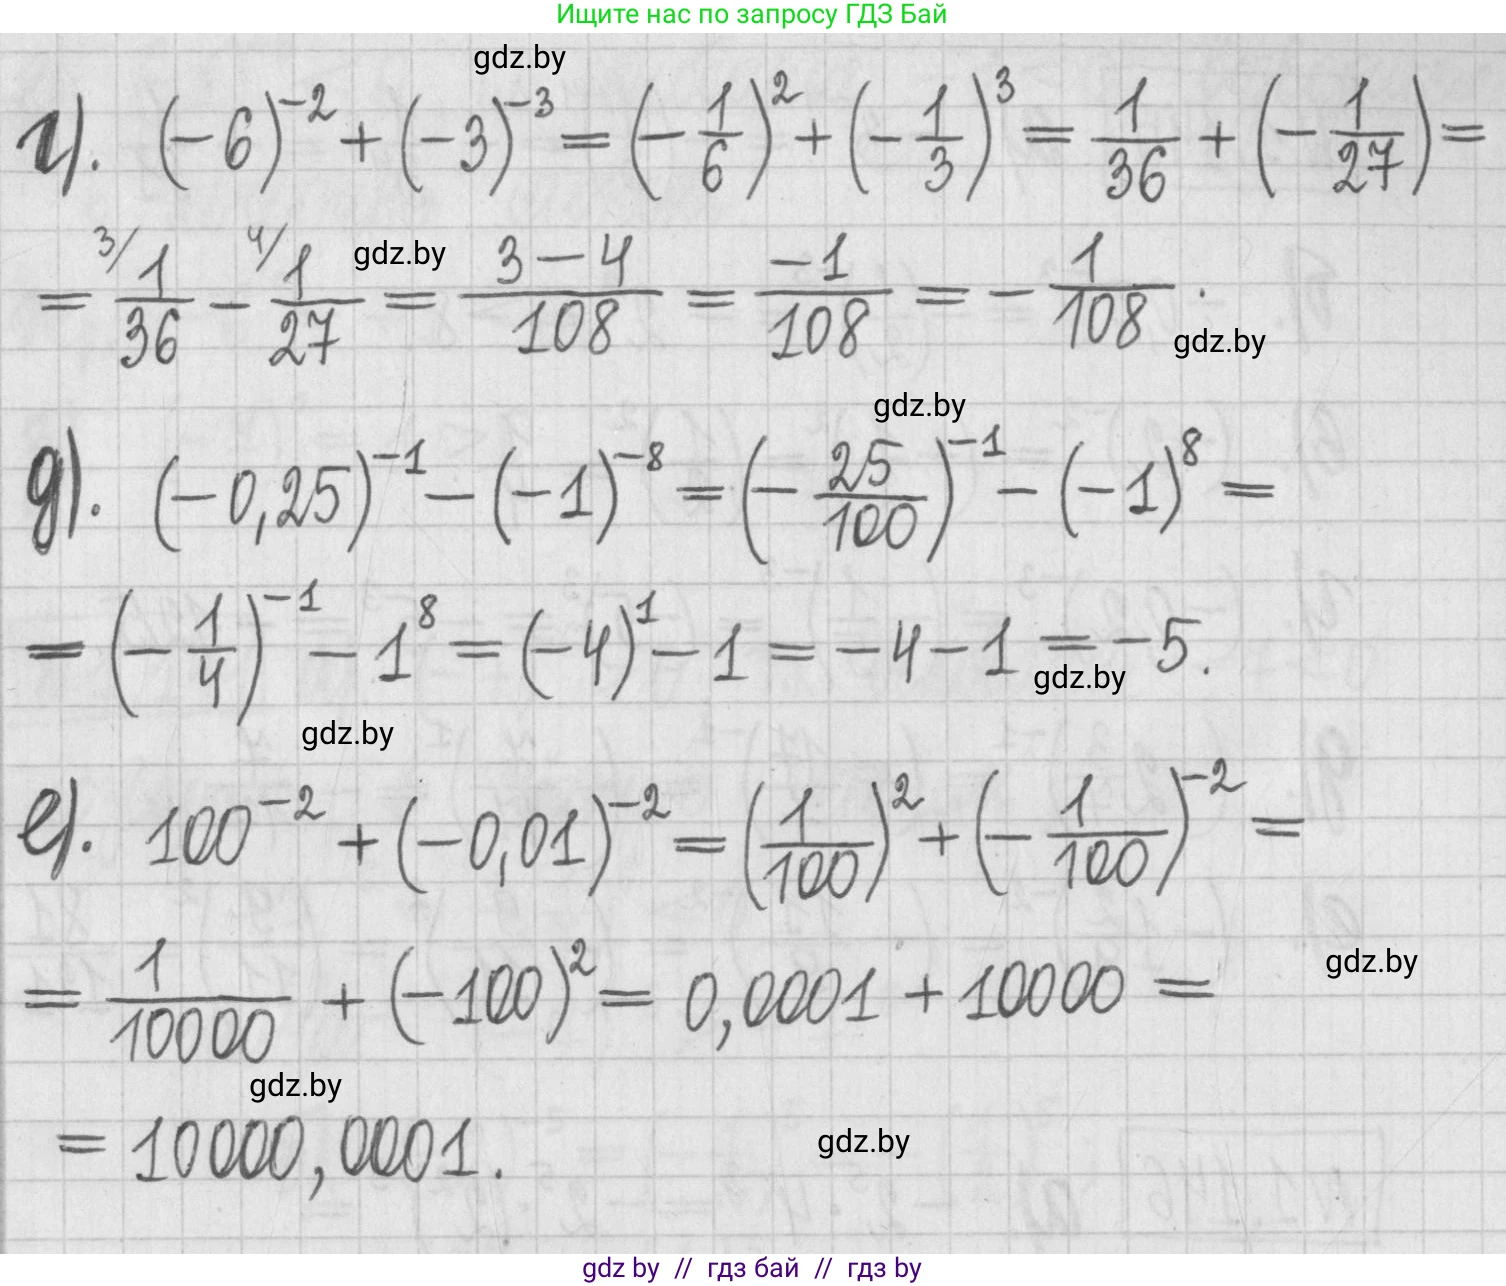 Ищите нас по запросу ГДЗ Бай
gdz.by
г). (-6)^{-2} + (-3)^{-3} = (-\frac{1}{6})^2 + (-\frac{1}{3})^3 = \frac{1}{36} + (-\frac{1}{27}) =
= ^{3/}\frac{1}{36} - ^{4/}\frac{1}{27} = \frac{3-4}{108} = \frac{-1}{108} = -\frac{1}{108}.
gdz.by
gdz.by
gdz.by
д). (-0,25)^{-1} - (-1)^{-8} = (-\frac{25}{100})^{-1} - (-1)^8 =
= (-\frac{1}{4})^{-1} - 1^8 = (-4)^1 - 1 = -4 - 1 = -5.
gdz.by
gdz.by
е). 100^{-2} + (-0,01)^{-2} = (\frac{1}{100})^2 + (-\frac{1}{100})^{-2} =
= \frac{1}{10000} + (-100)^2 = 0,0001 + 10000 =
gdz.by
gdz.by
= 10000,0001.
gdz.by
gdz by // гдз бай // гдз by